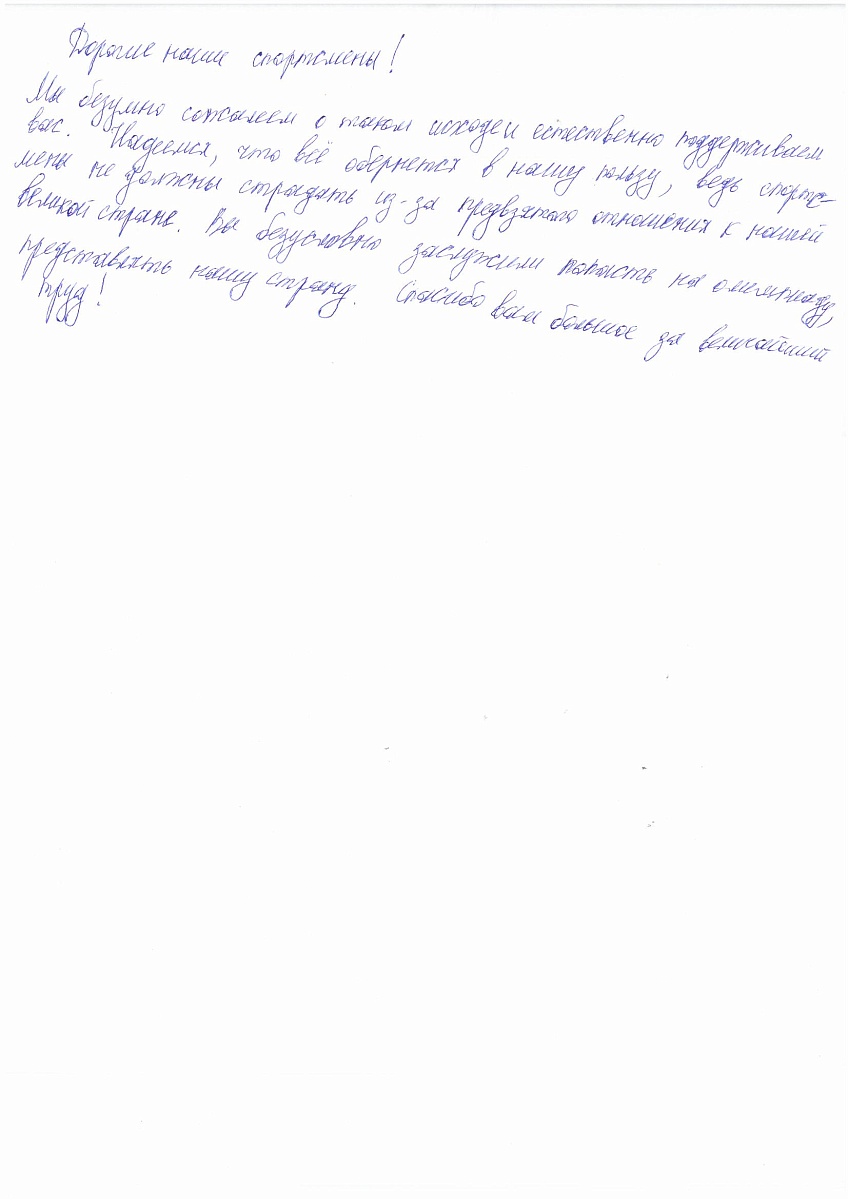 Дорогие наши спортсмены!
Мы безумно сожалеем о таком исходе и естественно поддерживаем
вас. Надеемся, что всё обернется в нашу пользу, ведь спортс-
мены не должны страдать из-за предвзятого отношения к нашей
великой стране. Вы безусловно заслужили попасть на олимпиаду,
представлять нашу страну. Спасибо вам большое за величайший
труд!